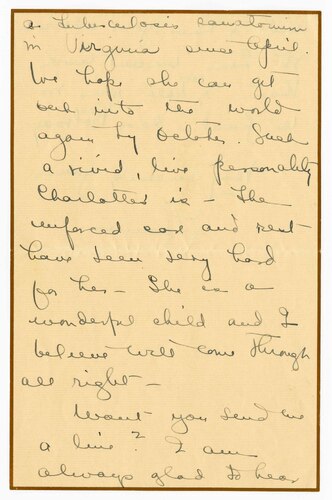 a tuberculosis sanatorium
in Virginia since April.
We hope she can get
back into the world
again by October. Such
a vivid, live personality
Charlotte is – The
enforced care and rest
have been very hard
for her – She is a
wonderful child and I
believe will come through
all right –
Wont you send me
a line? I am
always glad to hear